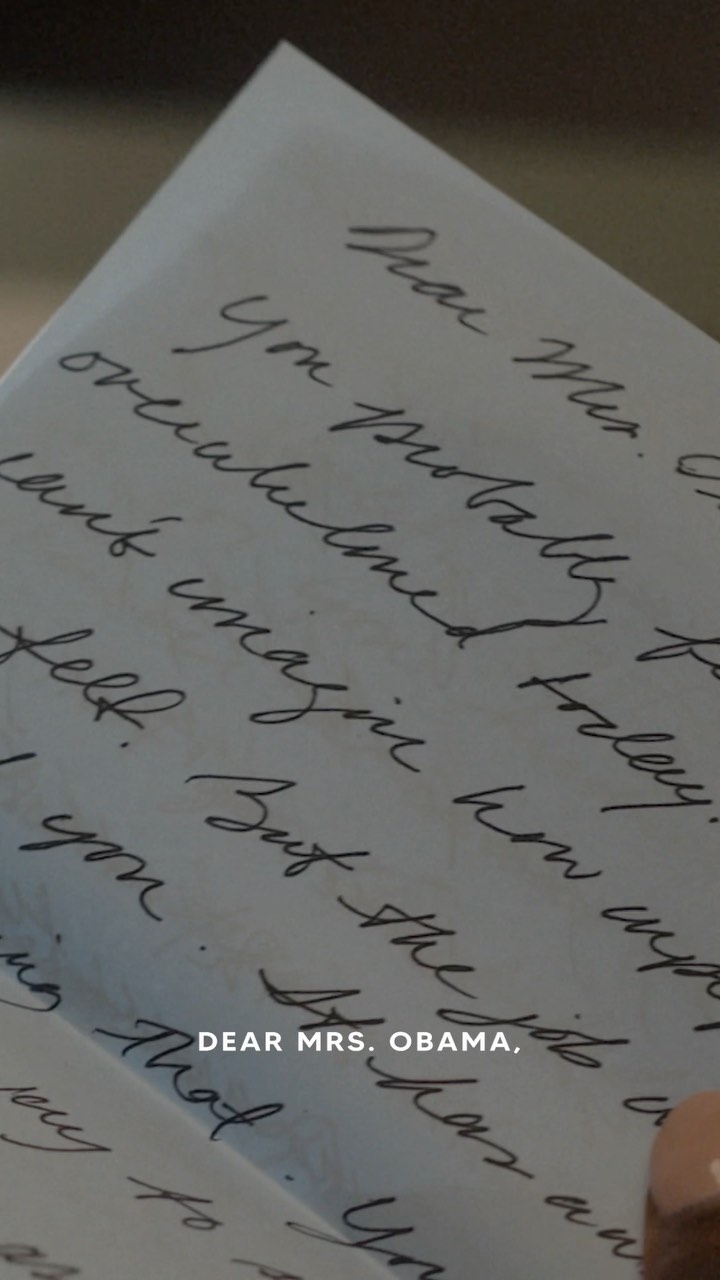 Dear Mrs.
You probably
overwhelmed today.
can't imagine how
felt. But the job
you. It has an
That. You
to
DEAR MRS. OBAMA,